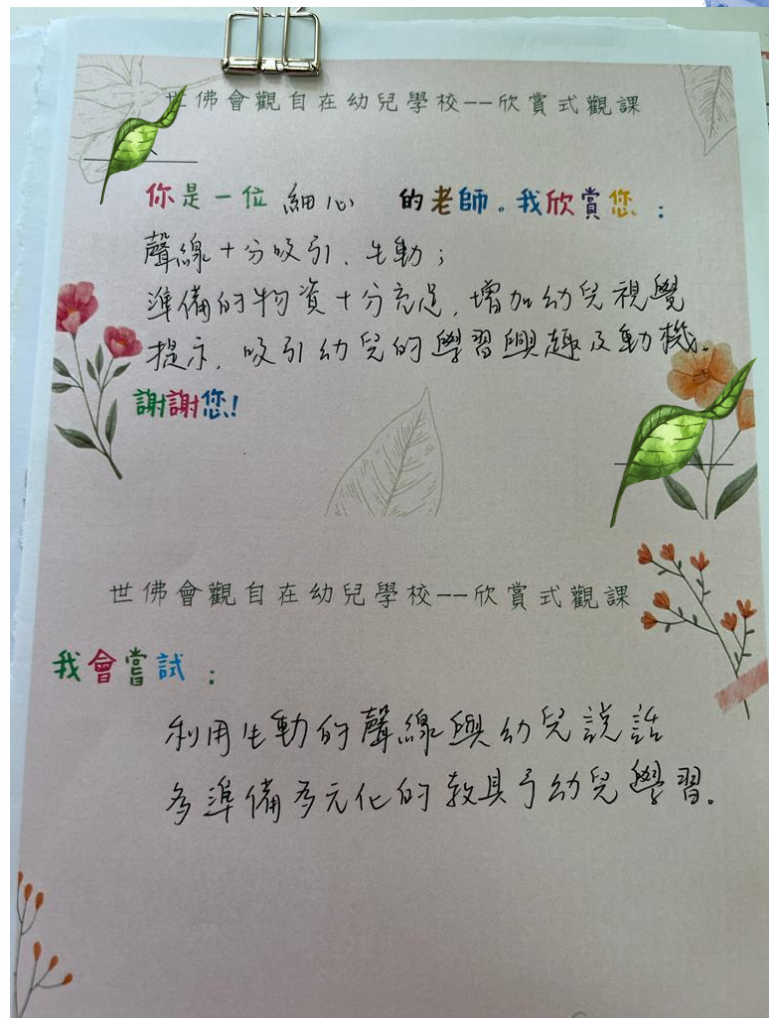 世佛會觀自在幼兒學校--欣賞式觀課
你是一位 細心 的老師。我欣賞您：
聲線十分吸引、生動；
準備的物資十分充足，增加幼兒視覺
提示，吸引幼兒的學習興趣及動機。
謝謝您!
世佛會觀自在幼兒學校--欣賞式觀課
我會嘗試：
利用生動的聲線與幼兒說話
多準備多元化的教具予幼兒學習。